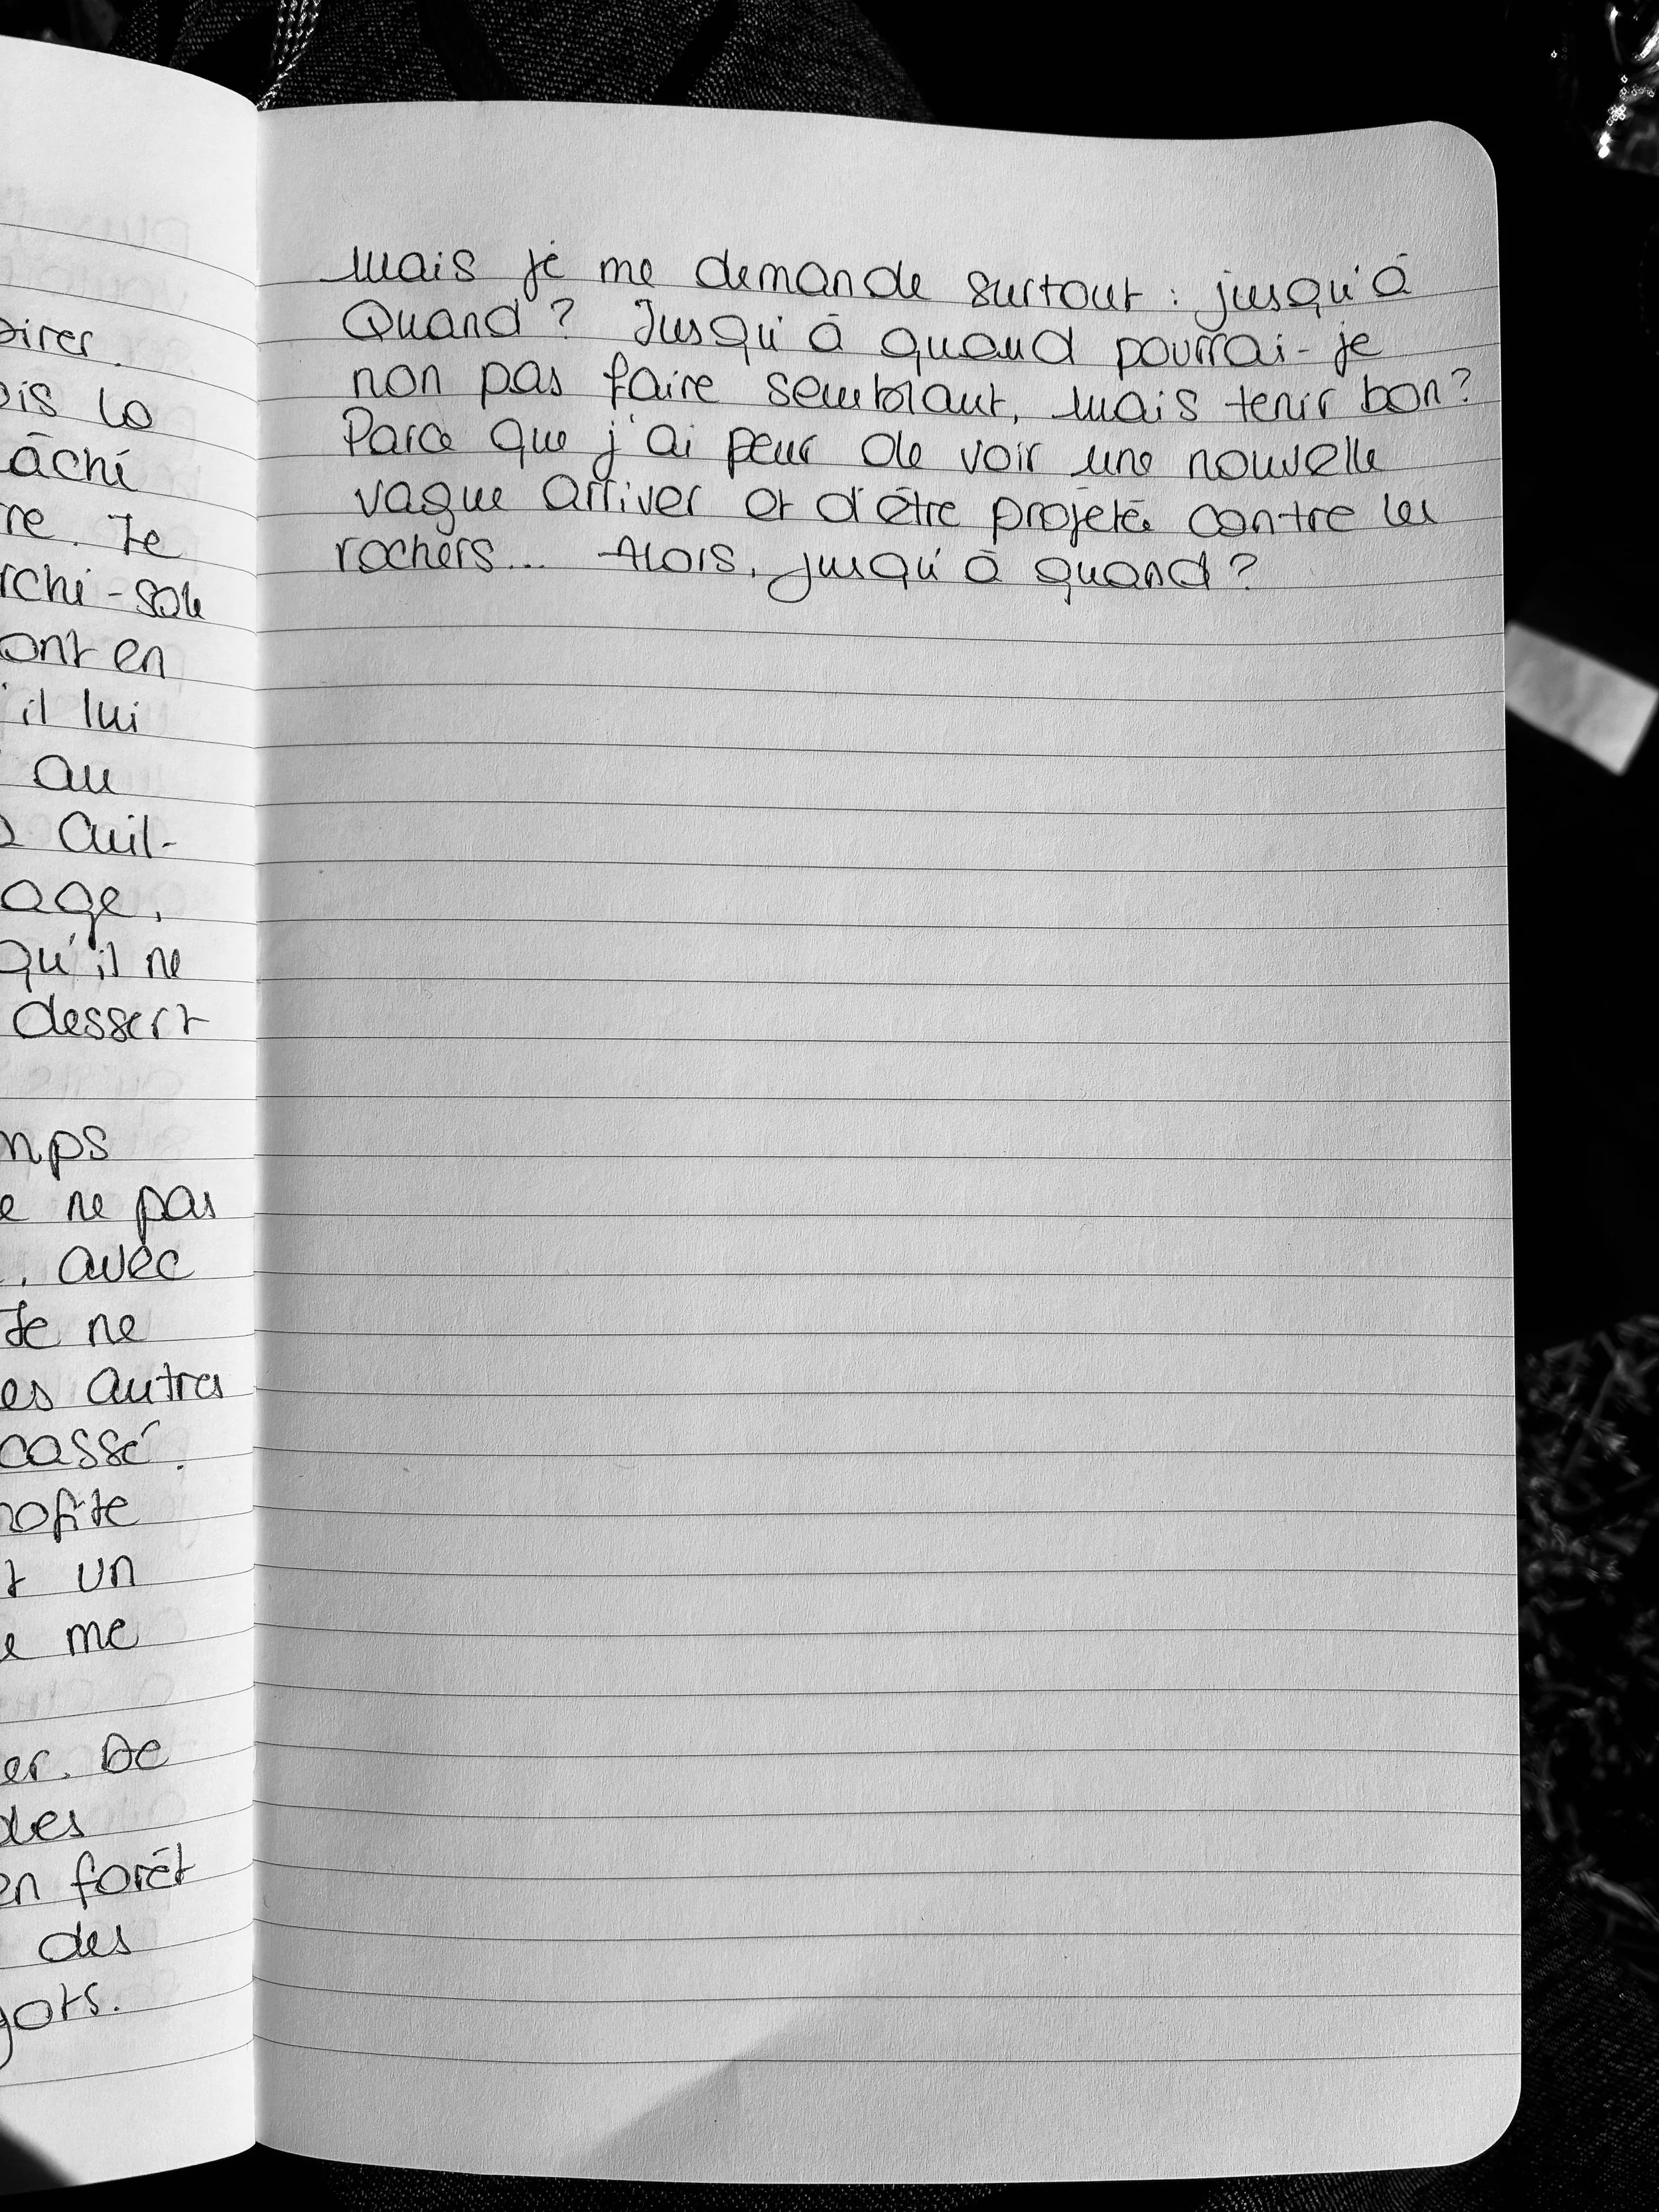 pirer.
ois la
âché
re. Je
rchi-sole
ont en
il lui
au
Cuil-
age,
qu'il ne
dessert
mps
e ne pas
, avec
Je ne
es autres
cassé.
rofite
t un
e me
er. De
des
en forêt
des
gots.
Mais je me demande surtout : jusqu'à
quand ? Jusqu'à quand pourrai-je
non pas faire semblant, mais tenir bon ?
Parce que j'ai peur de voir une nouvelle
vague arriver et d'être projetée contre les
rochers... Alors, jusqu'à quand ?